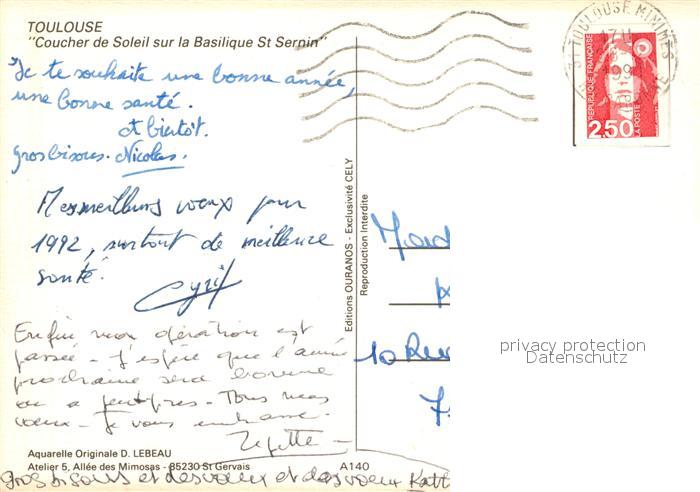 TOULOUSE
"Coucher de Soleil sur la Basilique St Sernin"
Je te souhaite une bonne année,
une bonne santé.
et bientôt.
gros bisous. Nicolas.
Mes meilleurs voeux pour
1992, surtout de meilleure
santé.
Cyril
Enfin mon opération est
passée - J'espère que l'année
prochaine sera bonne
ou a peu près - Tous mes
voeux - Je vous embrasse -
gros bisous et des voeux et des voeux Katt
Aquarelle Originale D. LEBEAU
Atelier 5, Allée des Mimosas - 85230 St Gervais
A140
Editions OURANOS - Exclusivité CELY
Reproduction Interdite
31 TOULOUSE MINIMES
REPUBLIQUE FRANÇAISE
2,50
LA POSTE
10 Rue
privacy protection
Datenschutz